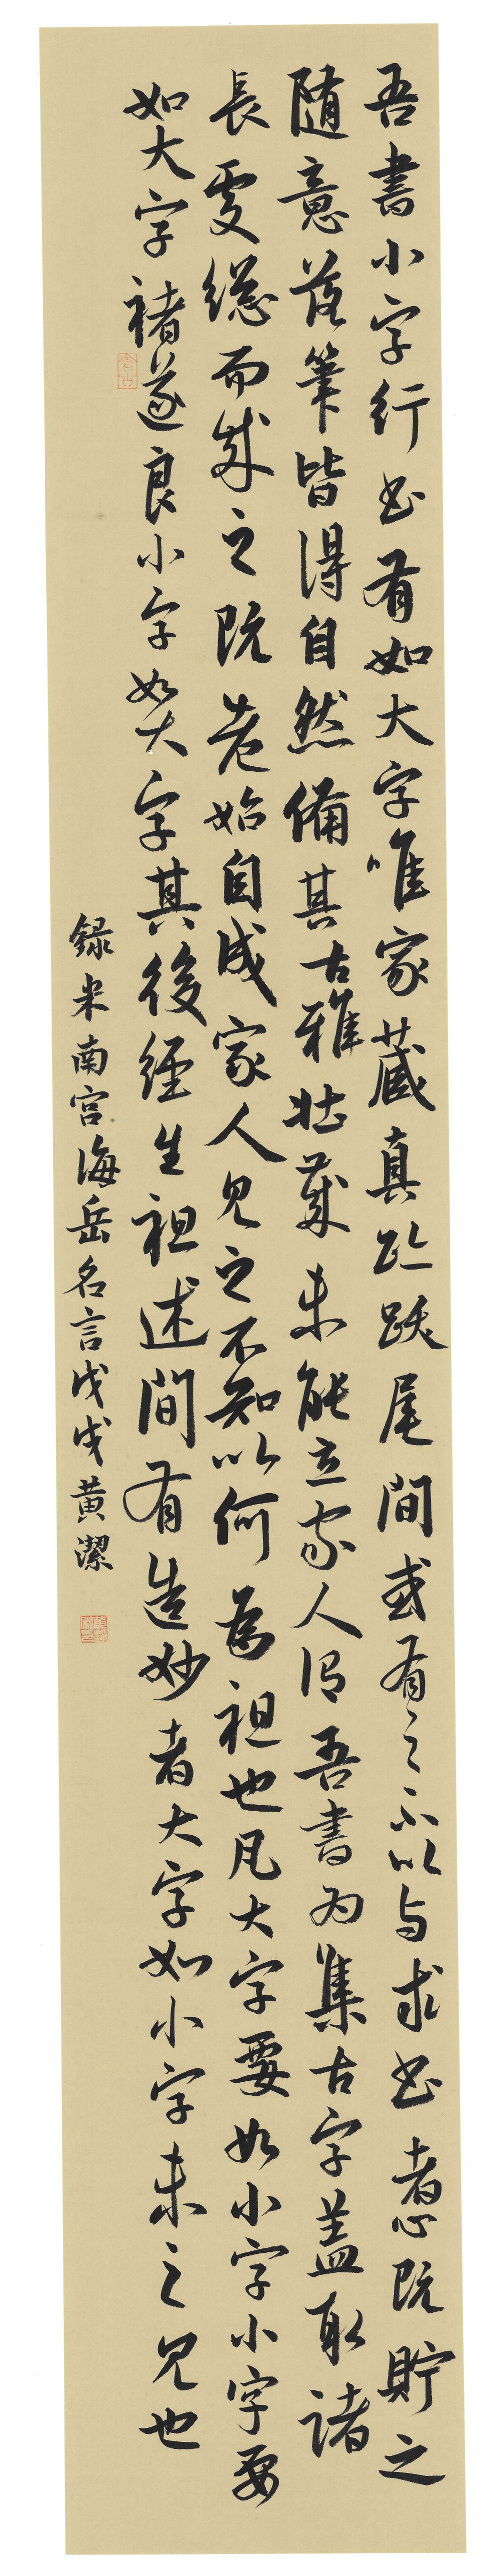 吾書小字行书有如大字唯家蔵真趾跋尾間或有之不以与求书者心既貯之
随意落筆皆得自然備其古雅壮歲未能立家人谓吾書为集古字盖取诸
長處総而成之既老始自成家人见之不知以何為祖也凡大字要如小字小字要
如大字褚遂良小字如大字其後經生祖述間有造妙者大字如小字未之见也
録米南宫海岳名言戊戌黄潔